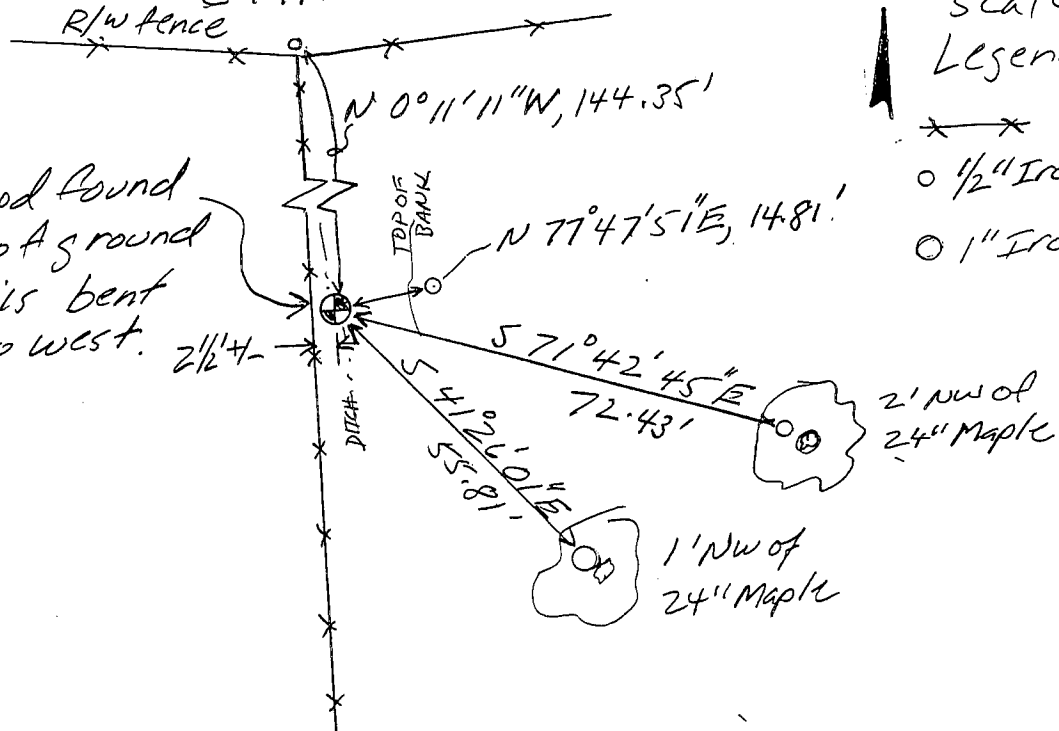 R/W fence
Legen
N 0°11'11"W, 144.35'
o 1/2" Iro
O 1" Iro
od found
of ground
is bent
o west.
TOP OF
BANK
N 77°47'51"E, 14.81'
2 1/2' +/-
DITCH
S 71°42'45"E
72.43'
2' NW of
24" Maple
S 41°26'01"E
55.81'
1' NW of
24" Maple